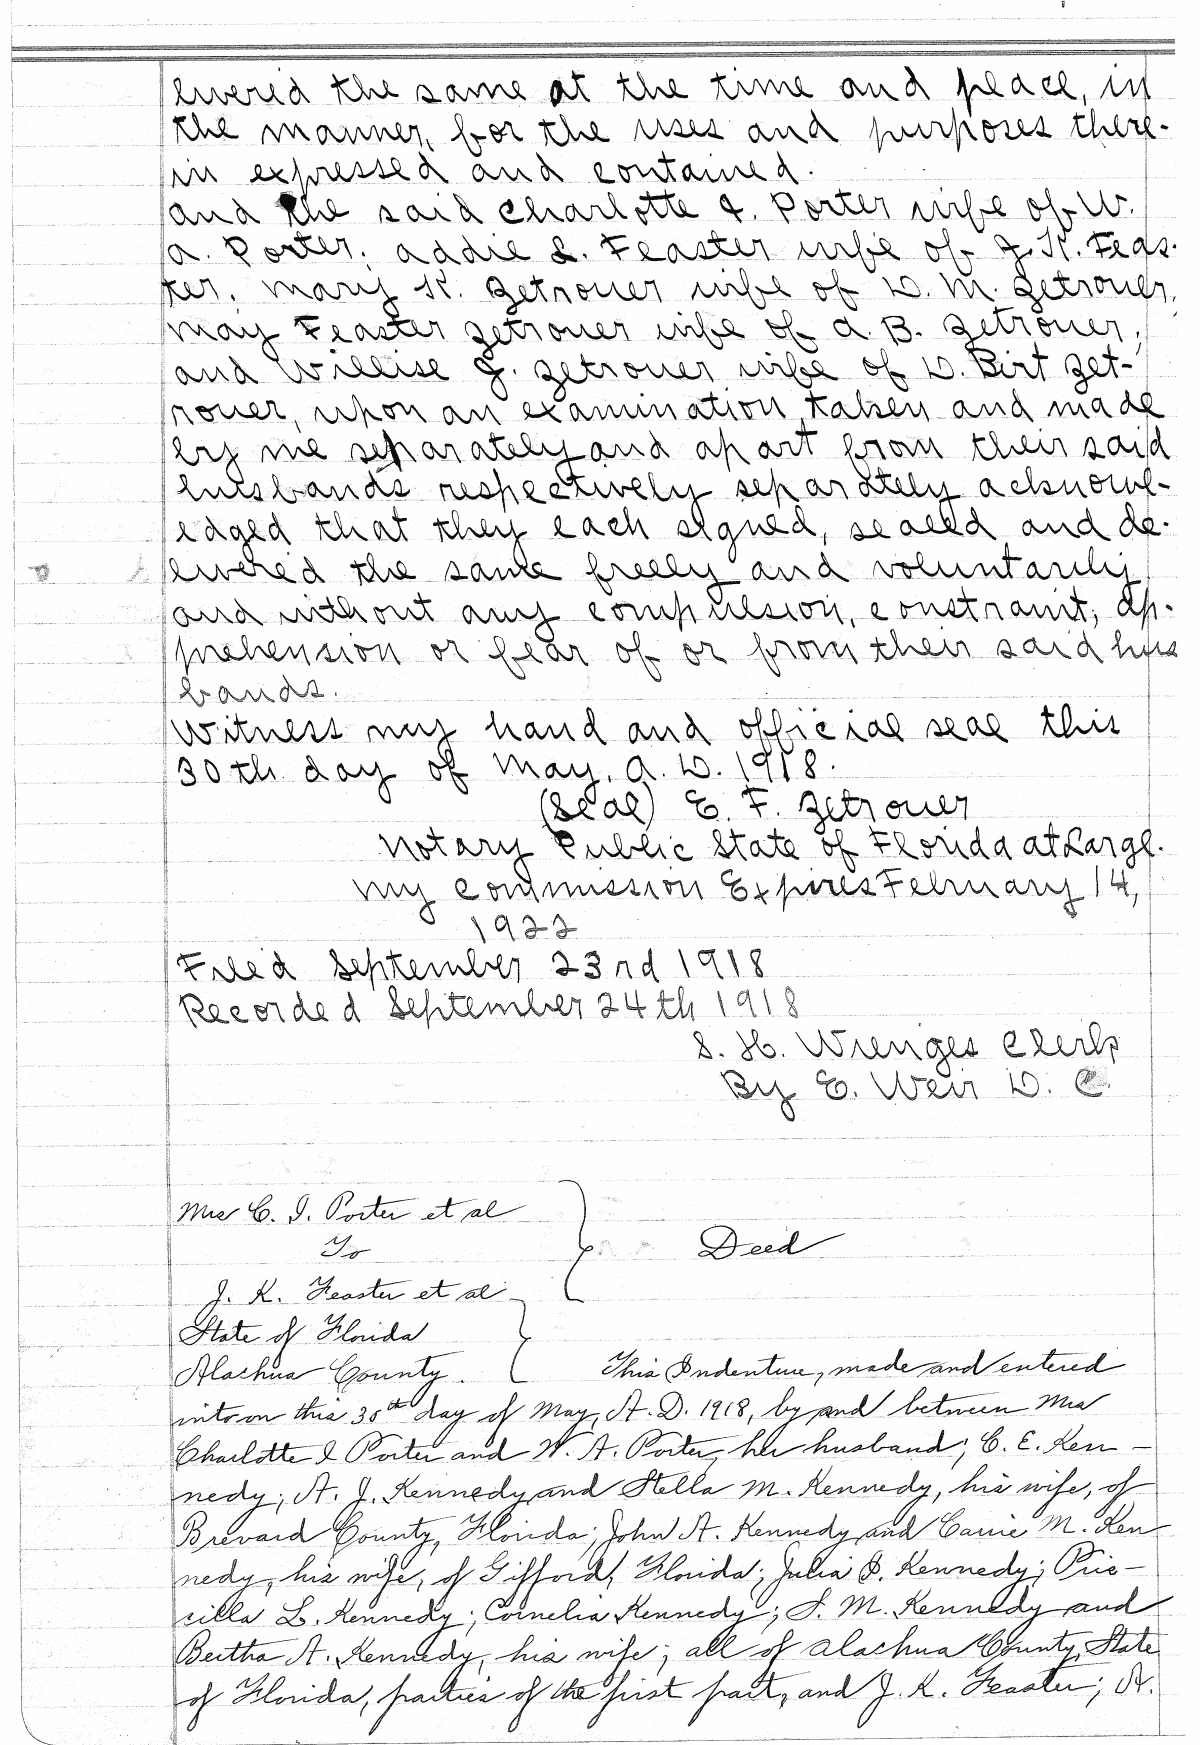 livered the same at the time and place, in
the manner, for the uses and purposes there-
in expressed and contained.
and the said Charlotte I. Porter wife of W.
A. Porter; Addie L. Feaster wife of J. K. Feas-
ter, Mary K. Zetrouer wife of D. M. Zetrouer,
May Feaster Zetrouer wife of A. B. Zetrouer;
and Willise J. Zetrouer wife of D. Birt Zet-
rouer, upon an examination taken and made
by me separately and apart from their said
husbands respectively separately acknowl-
edged that they each signed, sealed and de-
livered the same freely and voluntarily
and without any compulsion, constraint, ap-
prehension or fear of or from their said hus
bands.
Witness my hand and official seal this
30th day of May, A. D. 1918.
(Seal) E. F. Zetrouer
Notary Public State of Florida at Large.
My Commission Expires February 14,
1922
Filed September 23rd 1918
Recorded September 24th 1918
S. H. Wienges Clerk
By E. Weir D. C.
Mrs C. I. Porter et al
To
Deed
J. K. Feaster et al
State of Florida
Alachua County. This Indenture, made and entered
into on this 30th day of May, A. D. 1918, by and between Mrs
Charlotte I Porter and W. A. Porter, her husband; C. E. Ken-
nedy; A. J. Kennedy and Stella M. Kennedy, his wife, of
Brevard County, Florida; John A. Kennedy and Carrie M. Ken
nedy, his wife, of Gifford, Florida; Julia P. Kennedy; Pris-
cilla L. Kennedy; Cornelia Kennedy; S. M. Kennedy and
Bertha A. Kennedy, his wife; all of Alachua County, State
of Florida, parties of the first part, and J. K. Feaster; A.